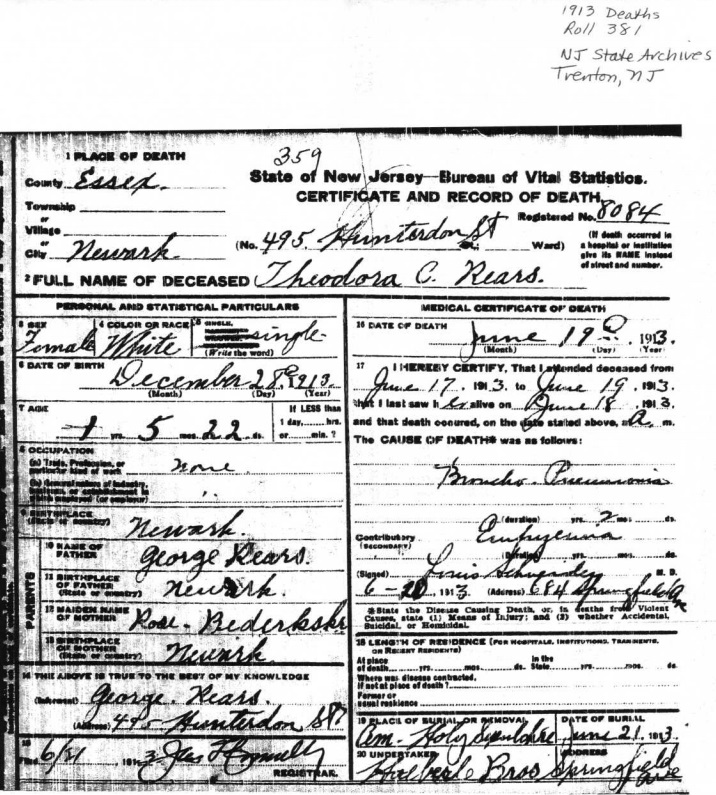 1913 Deaths
Roll 381
NJ State Archives
Trenton, NJ
359
1 PLACE OF DEATH
County Essex.
Township
or
Village
or
City Newark.
State of New Jersey—Bureau of Vital Statistics.
CERTIFICATE AND RECORD OF DEATH
Registered No. 8084
(No. 495 Hunterdon St Ward)
(If death occurred in
a hospital or institution
give its NAME instead
of street and number.
2 FULL NAME OF DECEASED Theodora C. Rears.
PERSONAL AND STATISTICAL PARTICULARS
3 SEX
Female
4 COLOR OR RACE
White
5 SINGLE,
single
(Write the word)
6 DATE OF BIRTH
December 28
(Month) (Day) (Year)
7 AGE
1 yrs. 5 mos. 22 ds.
If LESS than
1 day,......hrs.
or......min. ?
8 OCCUPATION
(a) Trade, Profession, or
particular kind of work none
(b) General nature of industry,
business, or establishment in
which employed (or employer) "
9 BIRTHPLACE
(State or country) Newark.
PARENTS
10 NAME OF
FATHER George Rears.
11 BIRTHPLACE
OF FATHER
(State or country) Newark.
12 MAIDEN NAME
OF MOTHER Rose
13 BIRTHPLACE
OF MOTHER
(State or country) Newark
14 THE ABOVE IS TRUE TO THE BEST OF MY KNOWLEDGE
(Informant) George Rears.
(Address) 495 Hunterdon St
15
Filed 6/21 191 3
REGISTRAR.
MEDICAL CERTIFICATE OF DEATH
16 DATE OF DEATH
June 19 , 1913.
(Month) (Day) (Year)
17 I HEREBY CERTIFY, That I attended deceased from
June 17, 1913. to June 19, 1913.
that I last saw her alive on June 18, 1913.
and that death occured, on the date stated above, at A. m.
The CAUSE OF DEATH* was as follows:
Broncho-Pneumonia
(duration) yrs. 2 mos. ds.
Contributory Empyema
(SECONDARY)
(Duration) yrs. mos. ds.
(Signed) Louis M. D.
6-20, 1913. (Address) 684 Springfield Ave
*State the Disease Causing Death, or, in deaths from Violent
Causes, state (1) Means of Injury; and (2) whether Accidental,
Suicidal, or Homicidal.
18 LENGTH OF RESIDENCE (FOR HOSPITALS, INSTITUTIONS, TRANSIENTS,
OR RECENT RESIDENTS)
At place
of death......yrs......mos......ds.
In the
State......yrs......mos......ds.
Where was disease contracted,
if not at place of death ?
Former or
usual residence
19 PLACE OF BURIAL OR REMOVAL
Holy Sepulchre
DATE OF BURIAL
June 21, 1913.
20 UNDERTAKER
Haeberle Bros
ADDRESS
Springfield
Ave